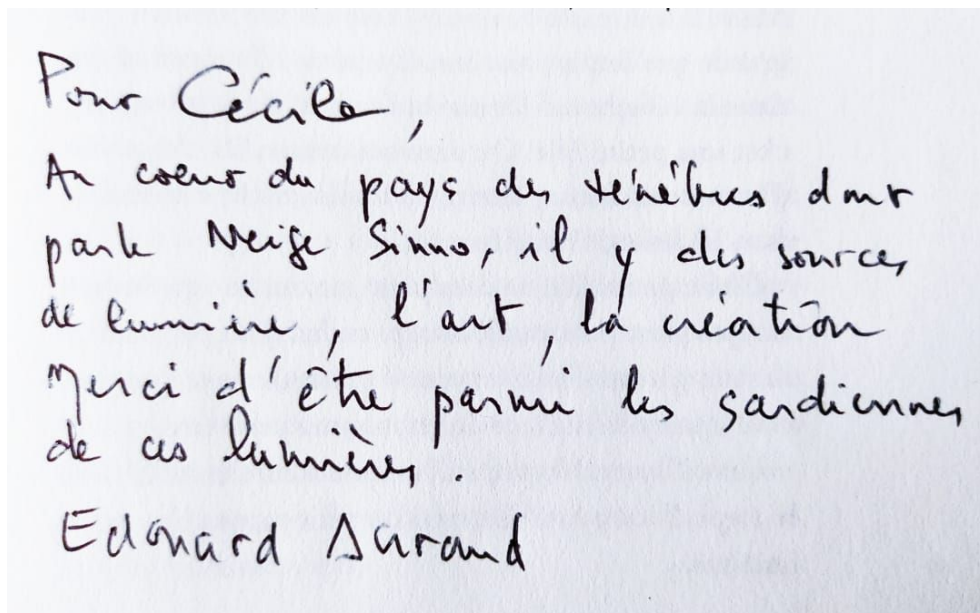 Pour Cécile,
Au coeur du pays des ténèbres dont
parle Neige Sinno, il y des sources
de lumière, l'art, la création
Merci d'être parmi les gardiennes
de ces lumières.
Edouard Durand